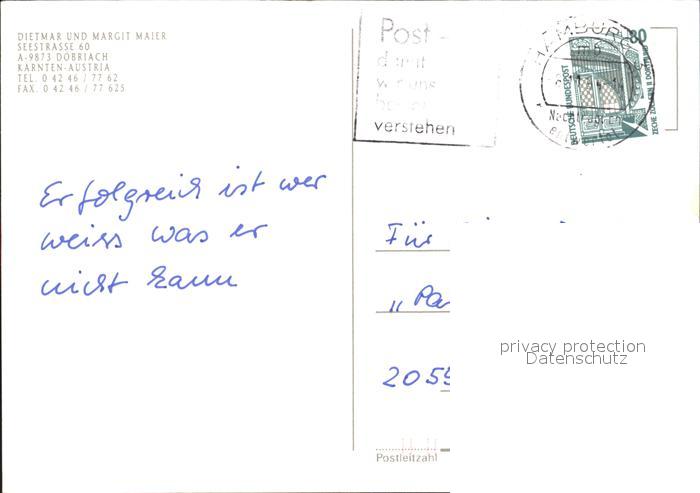 DIETMAR UND MARGIT MAIER
SEESTRASSE 60
A-9873 DÖBRIACH
KÄRNTEN-AUSTRIA
TEL. 0 42 46 / 77 62
FAX. 0 42 46 / 77 625
Post -
damit
wir uns
besser
verstehen
HAMBURG
80
DEUTSCHE BUNDESPOST
ZECHE ZOLLERN II DORTMUND
Erfolgreich ist wer
weiss was er
nicht kann
Für
„Pa
2055
privacy protection
Datenschutz
Postleitzahl